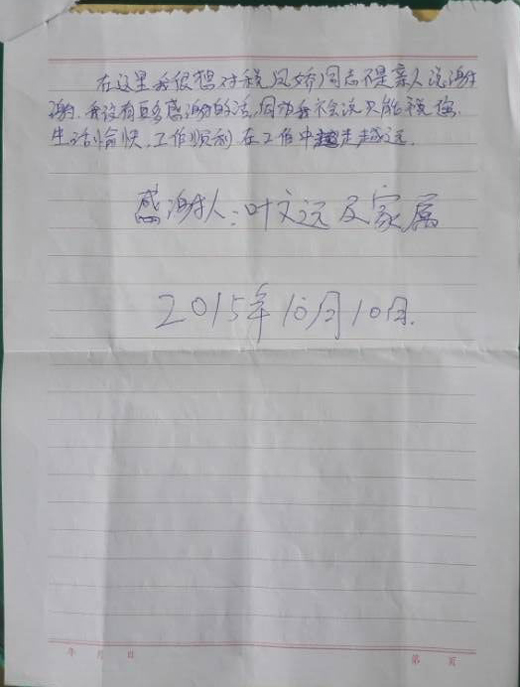 在这里我很想对税凤娇同志不是亲人说谢
谢.我没有更多感谢的话,因为我不会说只能祝您,
生活愉快,工作顺利在工作中越走越远.
感谢人:叶文远及家属
2015年10月10日.
年 月 日 第 页